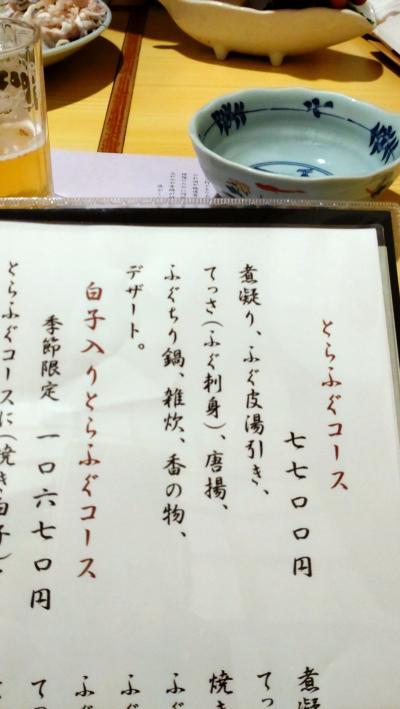 とらふぐコース
七七〇〇円
煮凝り、ふぐ皮湯引き、
てっさ(ふぐ刺身)、唐揚、
ふぐちり鍋、雑炊、香の物、
デザート。
白子入りとらふぐコース
季節限定 一〇六七〇円
とらふぐコースに(焼き白子)、
煮凝
てっ
焼き
ふ
ふ
ふ
て